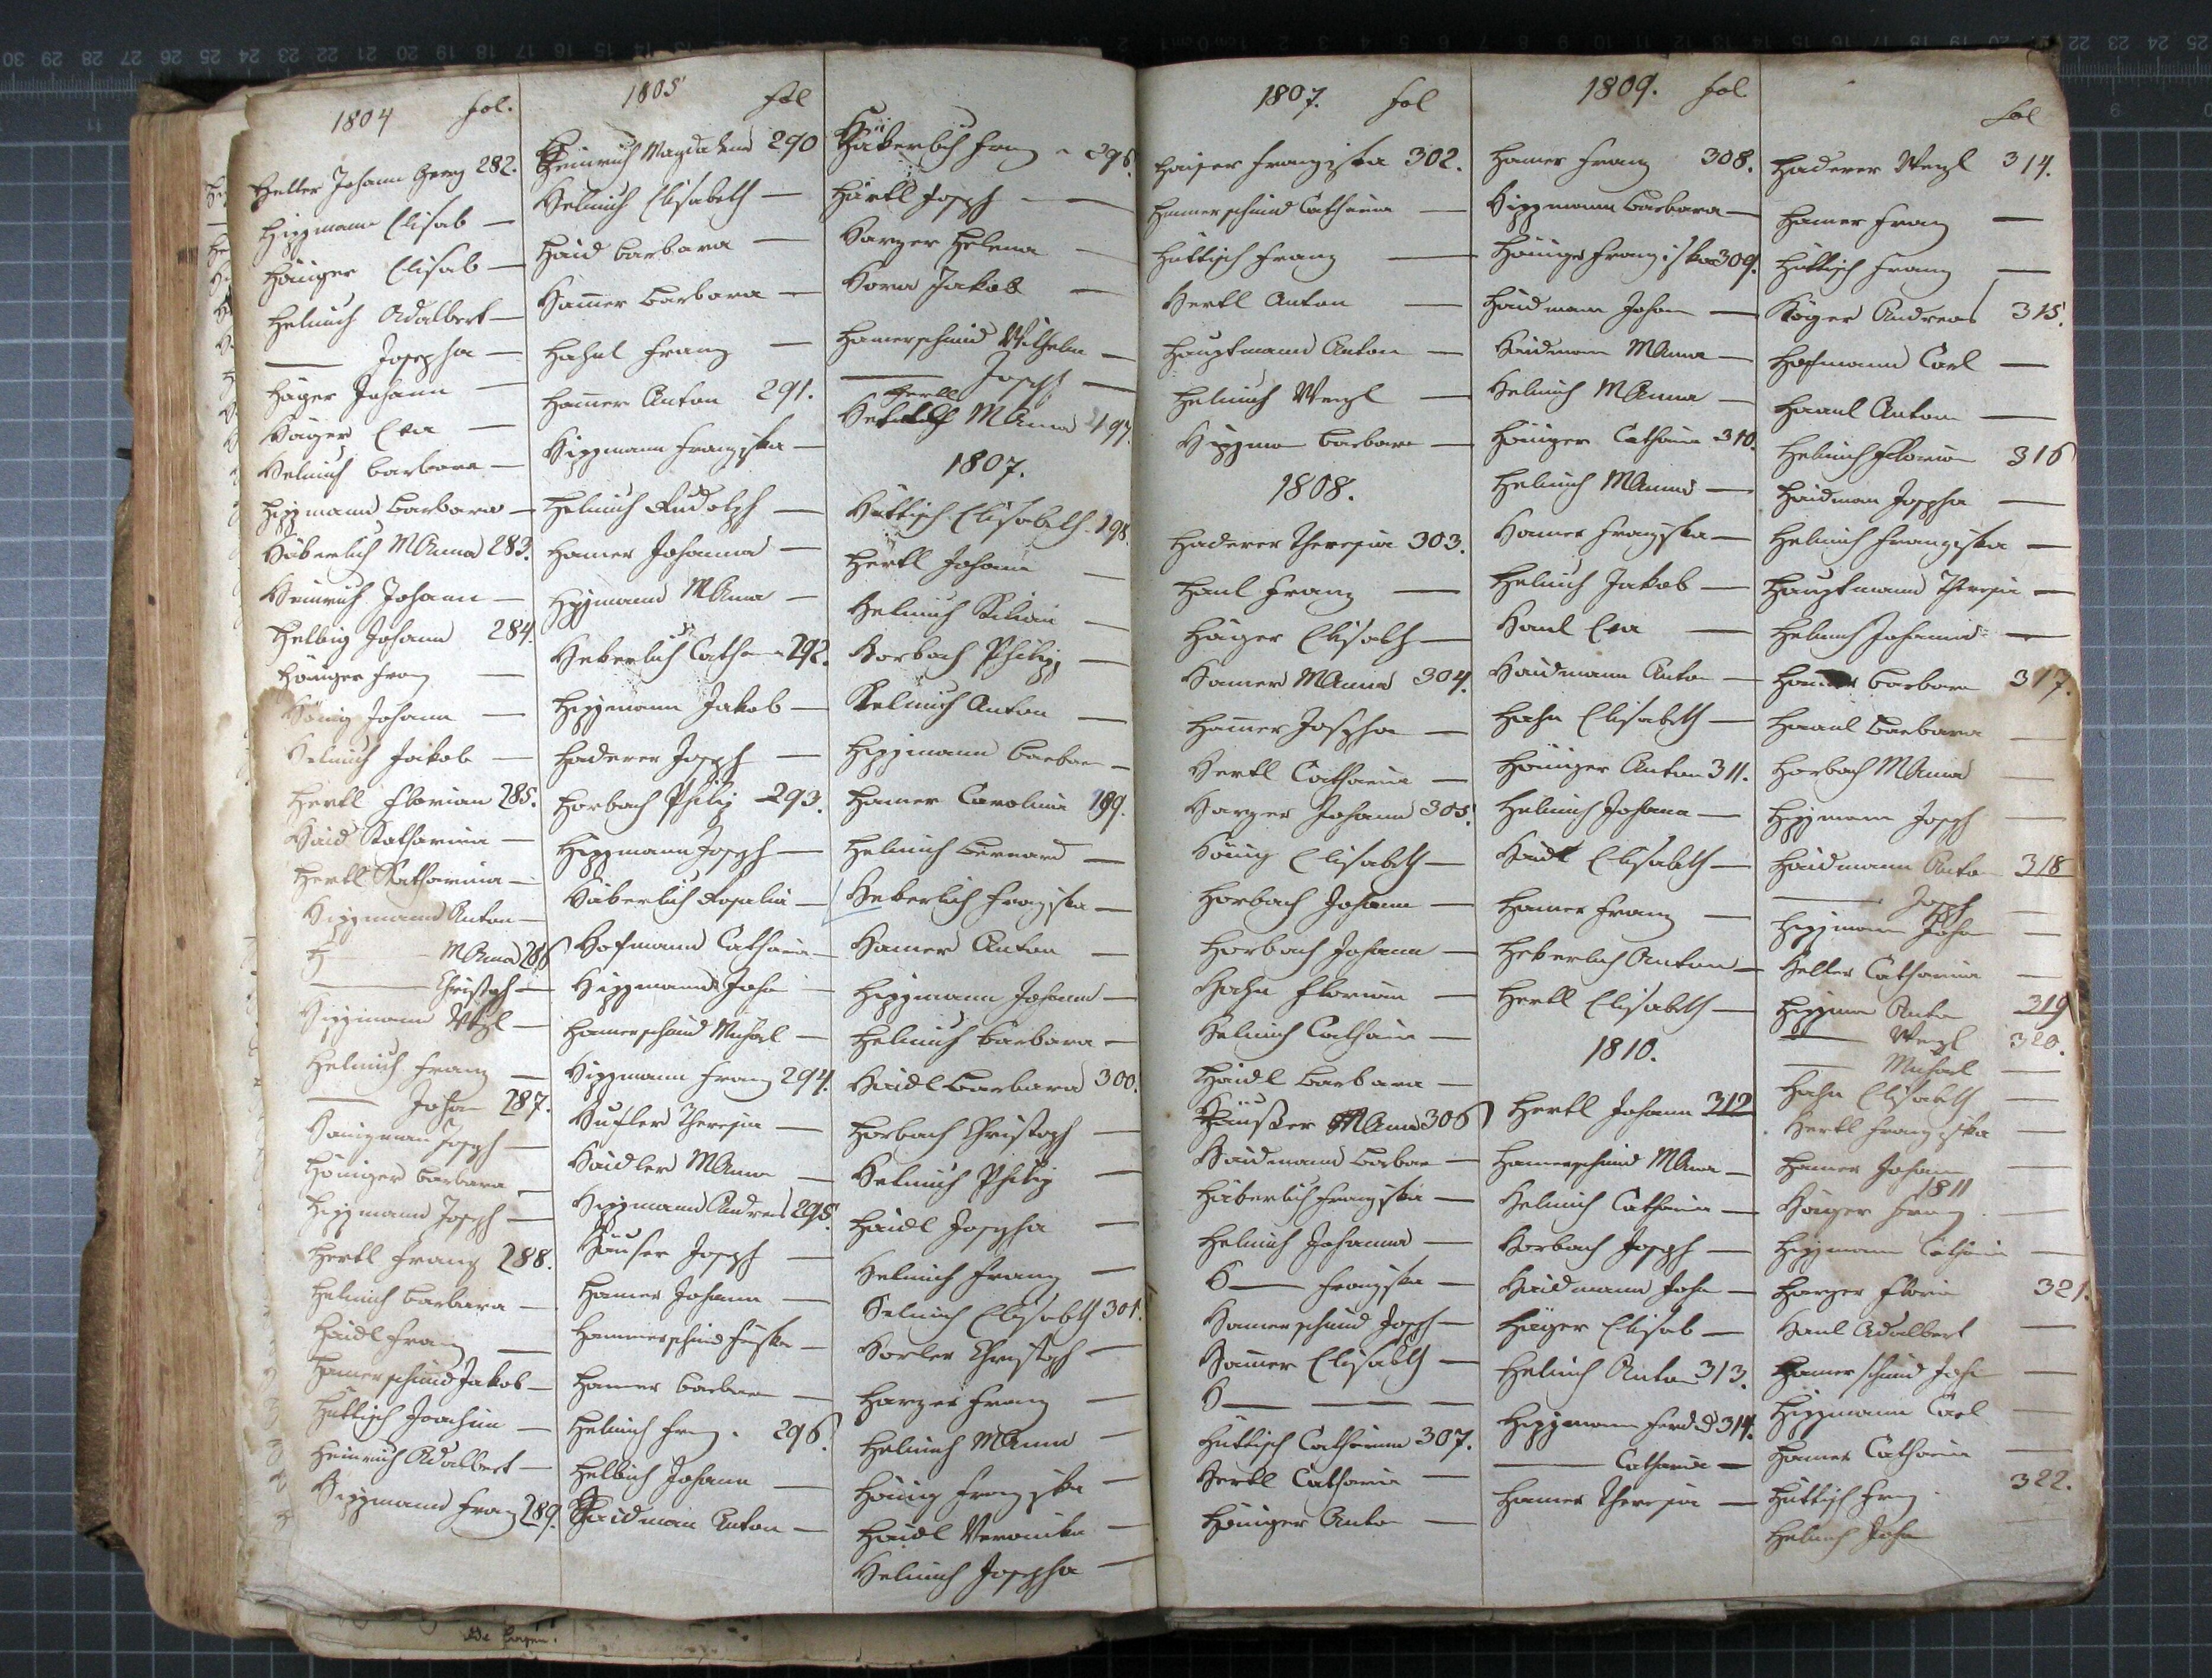 1804 fol.
Heller Johann Georg 282.
Hippmann Elisab —
Höniger Elisab —
Helmich Adalbert —
— Josepha —
Häger Johann —
Häger Eva —
Helmich Barbara —
Hippmann Barbara —
Häberlich MAnna 283.
Heinrich Johann —
Helbig Johann 284.
Höniger Franz —
König Johann —
Helmich Jakob —
Hertl Florian 285.
Haid Katharina —
Hertl Katharina —
Hippmann Anton —
H — MAnna 286
— Christoph —
Hippmann Wzl —
Helmich Franz —
— Johan 287.
Joseph —
Höniger Barbara —
Hippmann Joseph —
Hertl Franz 288.
Helmich Barbara —
Haidl Franz —
Hamerschmid Jakob —
Hüttisch Joachim —
Heinrich Adalbert —
Hippmann Franz 289.
1805 fol
Heinrich Magdalena 290
Helmich Elisabeth —
Haid Barbara —
Hamer Barbara —
Hahnl Franz —
Hamer Anton 291.
Hippmann Franziska —
Helmich Rudolph —
Hamer Johanna —
Hippmann MAnna —
Heberlich Catha 292.
Hippmann Jakob —
Haderer Joseph —
Horbach Philip 293.
Hippmann Joseph —
Häberlich Rosalia —
Hofmann Catharina —
Hippmann Joha —
Hamerschmid Michael —
Hippmann Franz 294.
Theresia —
Haidler MAnna —
Hippmann Andreas 295.
Häuser Joseph —
Hamer Johann —
Hammerschmid —
Hamer Barbara —
Helmich Frz. 296.
Helbich Johann —
Haidman Anton —
Häkerlich Franz 296.
Härtl Joseph —
Harzer Helena —
Hora Jakob —
Hamerschmid Wilhelm —
— Joseph —
Hertl
MAnna 297.
1807.
Hüttisch Elisabeth 298.
Hertl Johann —
Helmich Kilian —
Horbach Philipp —
Helmich Anton —
Hippmann Barbara —
Hamer Carolina 299.
Helmich Bernard —
Heberlich Franziska —
Hamer Anton —
Hippmann Johann —
Helmich Barbara —
Haidl Barbara 300.
Horbach Christoph —
Helmich Philip —
Haidl Josepha —
Helmich Franz —
Helmich Elisabeth 301.
Horler Christoph —
Harzer Franz —
Helmich MAnna —
Hönig Franziska —
Haidl Veronika —
Helmich Josepha —
1807. fol
Haiser Franziska 302.
Hamerschmid Catharina —
Hüttisch Franz —
Hertl Anton —
Hauptmann Anton —
Helmich Wenzl —
Hippman Barbara —
1808.
Haderer Theresia 303.
Hanl Franz —
Häger Elisabeth —
Hamer MAnna 304.
Hamer Josepha —
Hertl Catharina —
Harzer Johann 305.
Hönig Elisabeth —
Horbach Johann —
Horbach Johann —
Hahn Florian —
Helmich Catharina —
Haidl Barbara —
Häußer MAnna 306
Haidmann Barbara —
Häberlich Franziska —
Helmich Johanna —
H — Franziska —
Hamerschmid Joseph —
Hamer Elisabeth —
H — — —
Hüttisch Catharina 307.
Hertl Catharina —
Höniger Anton —
1809. fol
Hamer Franz 308.
Hippmann Barbara —
Höniger Franziska 309.
Haidmann Johann —
Haidmann MAnna —
Helmich MAnna —
Höniger Catharina 310.
Helmich MAnna —
Hamer Franziska —
Helmich Jakob —
Hanl Eva —
Haidmann Anton —
Hahn Elisabeth —
Höniger Anton 311.
Helmich Johann —
Haidl Elisabeth —
Hamer Franz —
Heberlich Anton —
Hertl Elisabeth —
1810.
Hertl Johann 312
Hamerschmid MAnna —
Helmich Catharina —
Horbach Joseph —
Haidmann Joha —
Häger Elisab —
Helmich Anton 313.
Hippmann Ferdid 314.
— Catharina —
Hamer Theresia —
fol
Haderer Wenzl 314.
Hamer Franz —
Hüttisch Franz —
Häger Andreas 315.
Hofmann Carl —
Haanl Anton —
Helmich Florian 316
Haidman Josepha —
Helmich Franziska —
Hauptmann Theresia —
Helmich Johanna —
Hamer Barbara 317.
Haanl Barbara —
Horbach MAnna —
Hippmann Joseph —
Haidmann Anton 318
— Joseph —
Hippmann Johan —
Heller Catharina —
Hippman Anton 319
— Wenzl 320.
— Michael —
Hahn Elisabeth —
Hertl Franziska —
Hamer Johann —
1811
Höniger Franz —
Hippmann Catharina —
Harzer Florian 321.
Hanl Adalbert —
Hamerschmid Joha —
Hippmann Carl —
Hamer Catharina —
Hüttisch Frz. 322.
Helmich Joha